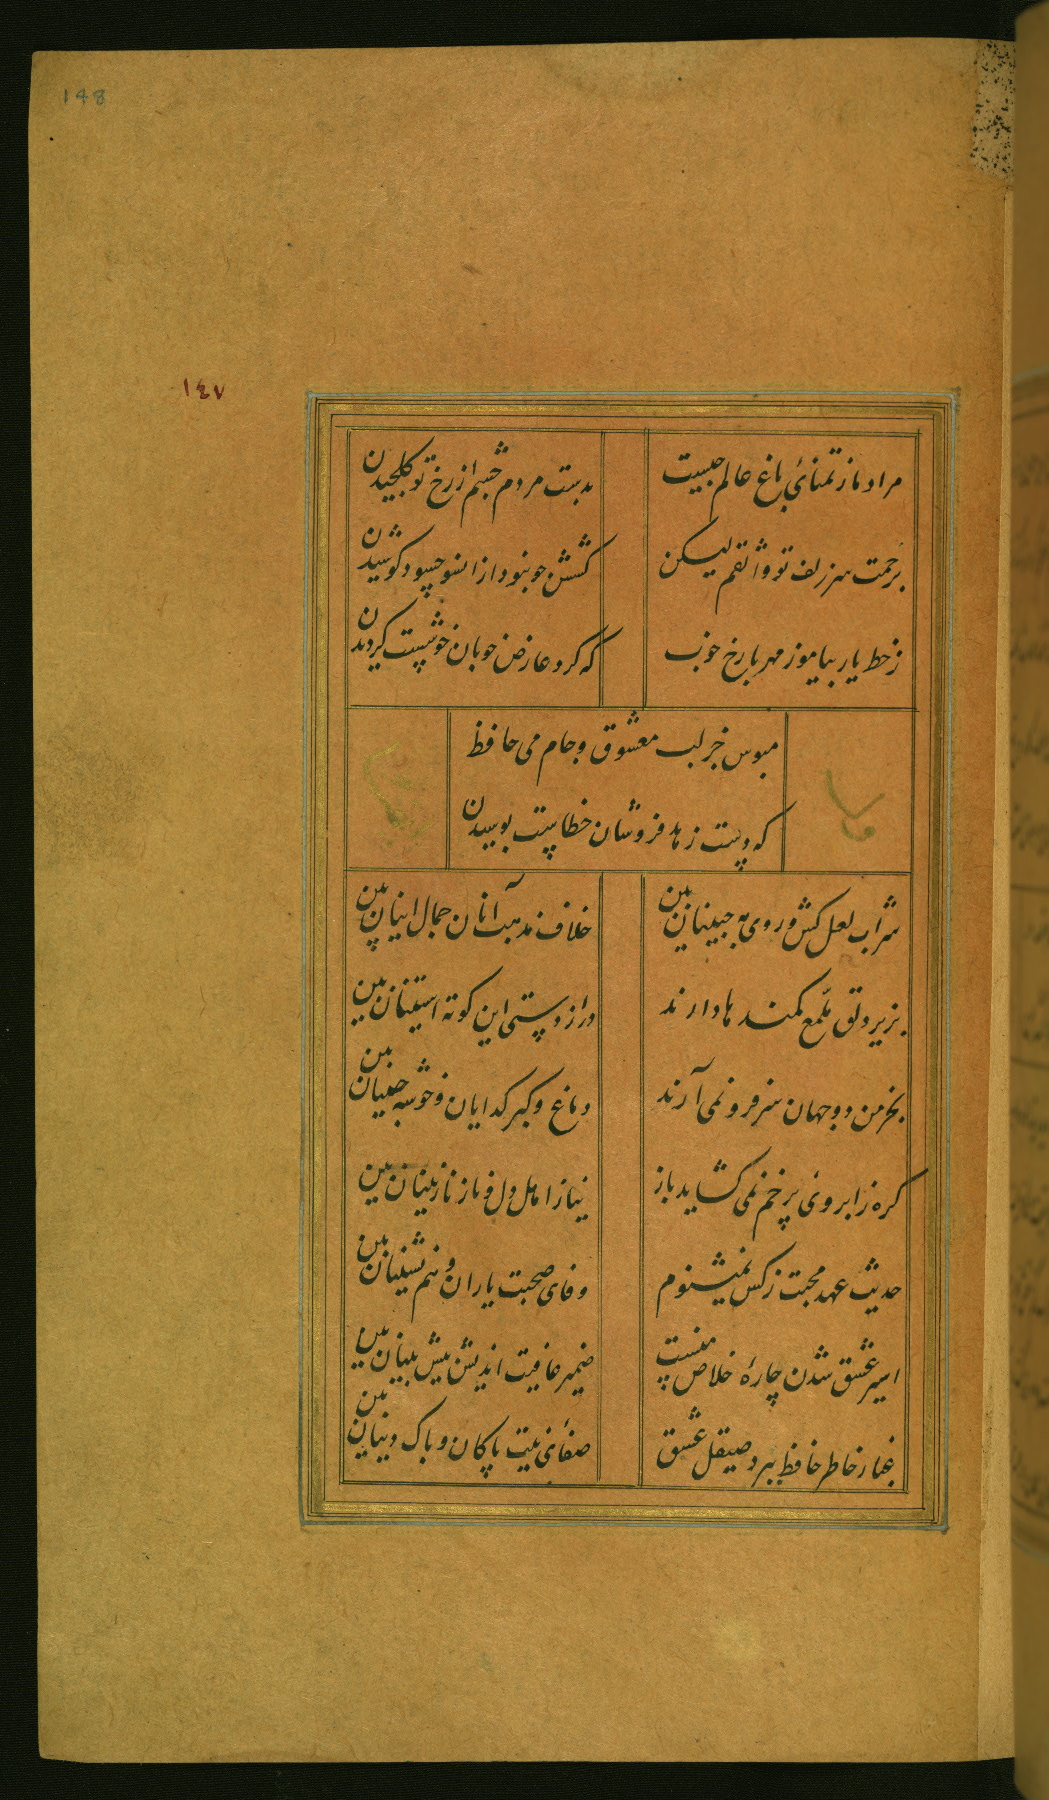 148
١٤٧
مراد ما ز تمنائی باغ عالم چیست
بدست مردم چشم از رخ تو گلچیدن
برحمت سر زلف تو واثقم لیکن
کشش چو نبود از انسو چسود کوشیدن
ز خط یار بیاموز مهر با رخ خوب
که کرد عارض خوبان خوشست گردیدن
مبوس جز لب معشوق و جام می حافظ
که دست زهد فروشان خطاست بوسیدن
وله
شراب لعل کش و روی مه جبینان بین
خلاف مذهب آنان جمال اینان بین
بزیر دلق ملمع کمندها دارند
دراز دستی این کوته استینان بین
بخرمن دو جهان سر فرو نمی آرند
دماغ و کبر کدایان و خوشه چینان بین
کره ز ابروی پر خم نمی کشاید باز
نیاز اهل دل و ناز نازنینان بین
حدیث عهد محبت ز کس نمیشنوم
وفای صحبت یاران و هم نشینان بین
اسیر عشق شدن چارهٔ خلاص منست
ضمیر عاقبت اندیش پیش بینان بین
غبار خاطر حافظ ببرد صیقل عشق
صفائی نیت پاکان و پاک دینان بین